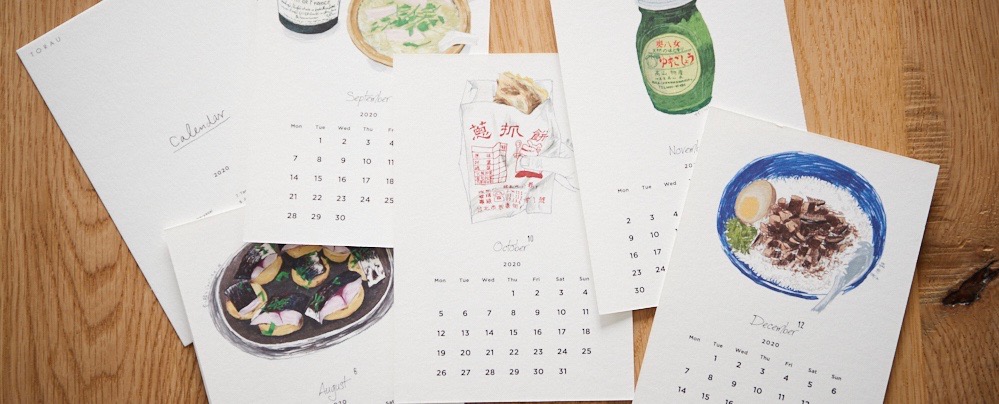 TORAU
Calendar
2020
September
2020
Mon Tue Wed Thu Fri
1 2 3 4
7 8 9 10 11
14 15 16 17 18
21 22 23 24 25
28 29 30
August 8
2020
蔥抓餅
October 10
2020
Mon Tue Wed Thu Fri Sat Sun
1 2 3 4
5 6 7 8 9 10 11
12 13 14 15 16 17 18
19 20 21 22 23 24 25
26 27 28 29 30 31
ゆずこしょう
Novem
Mon Tue Wed
2 3 4
9 10
16 17
23 24
30
December 12
2020
Mon Tue Wed Thu Fri Sat Sun
1 2 3 4 5 6
7 8 9 10 11 12
14 15 16